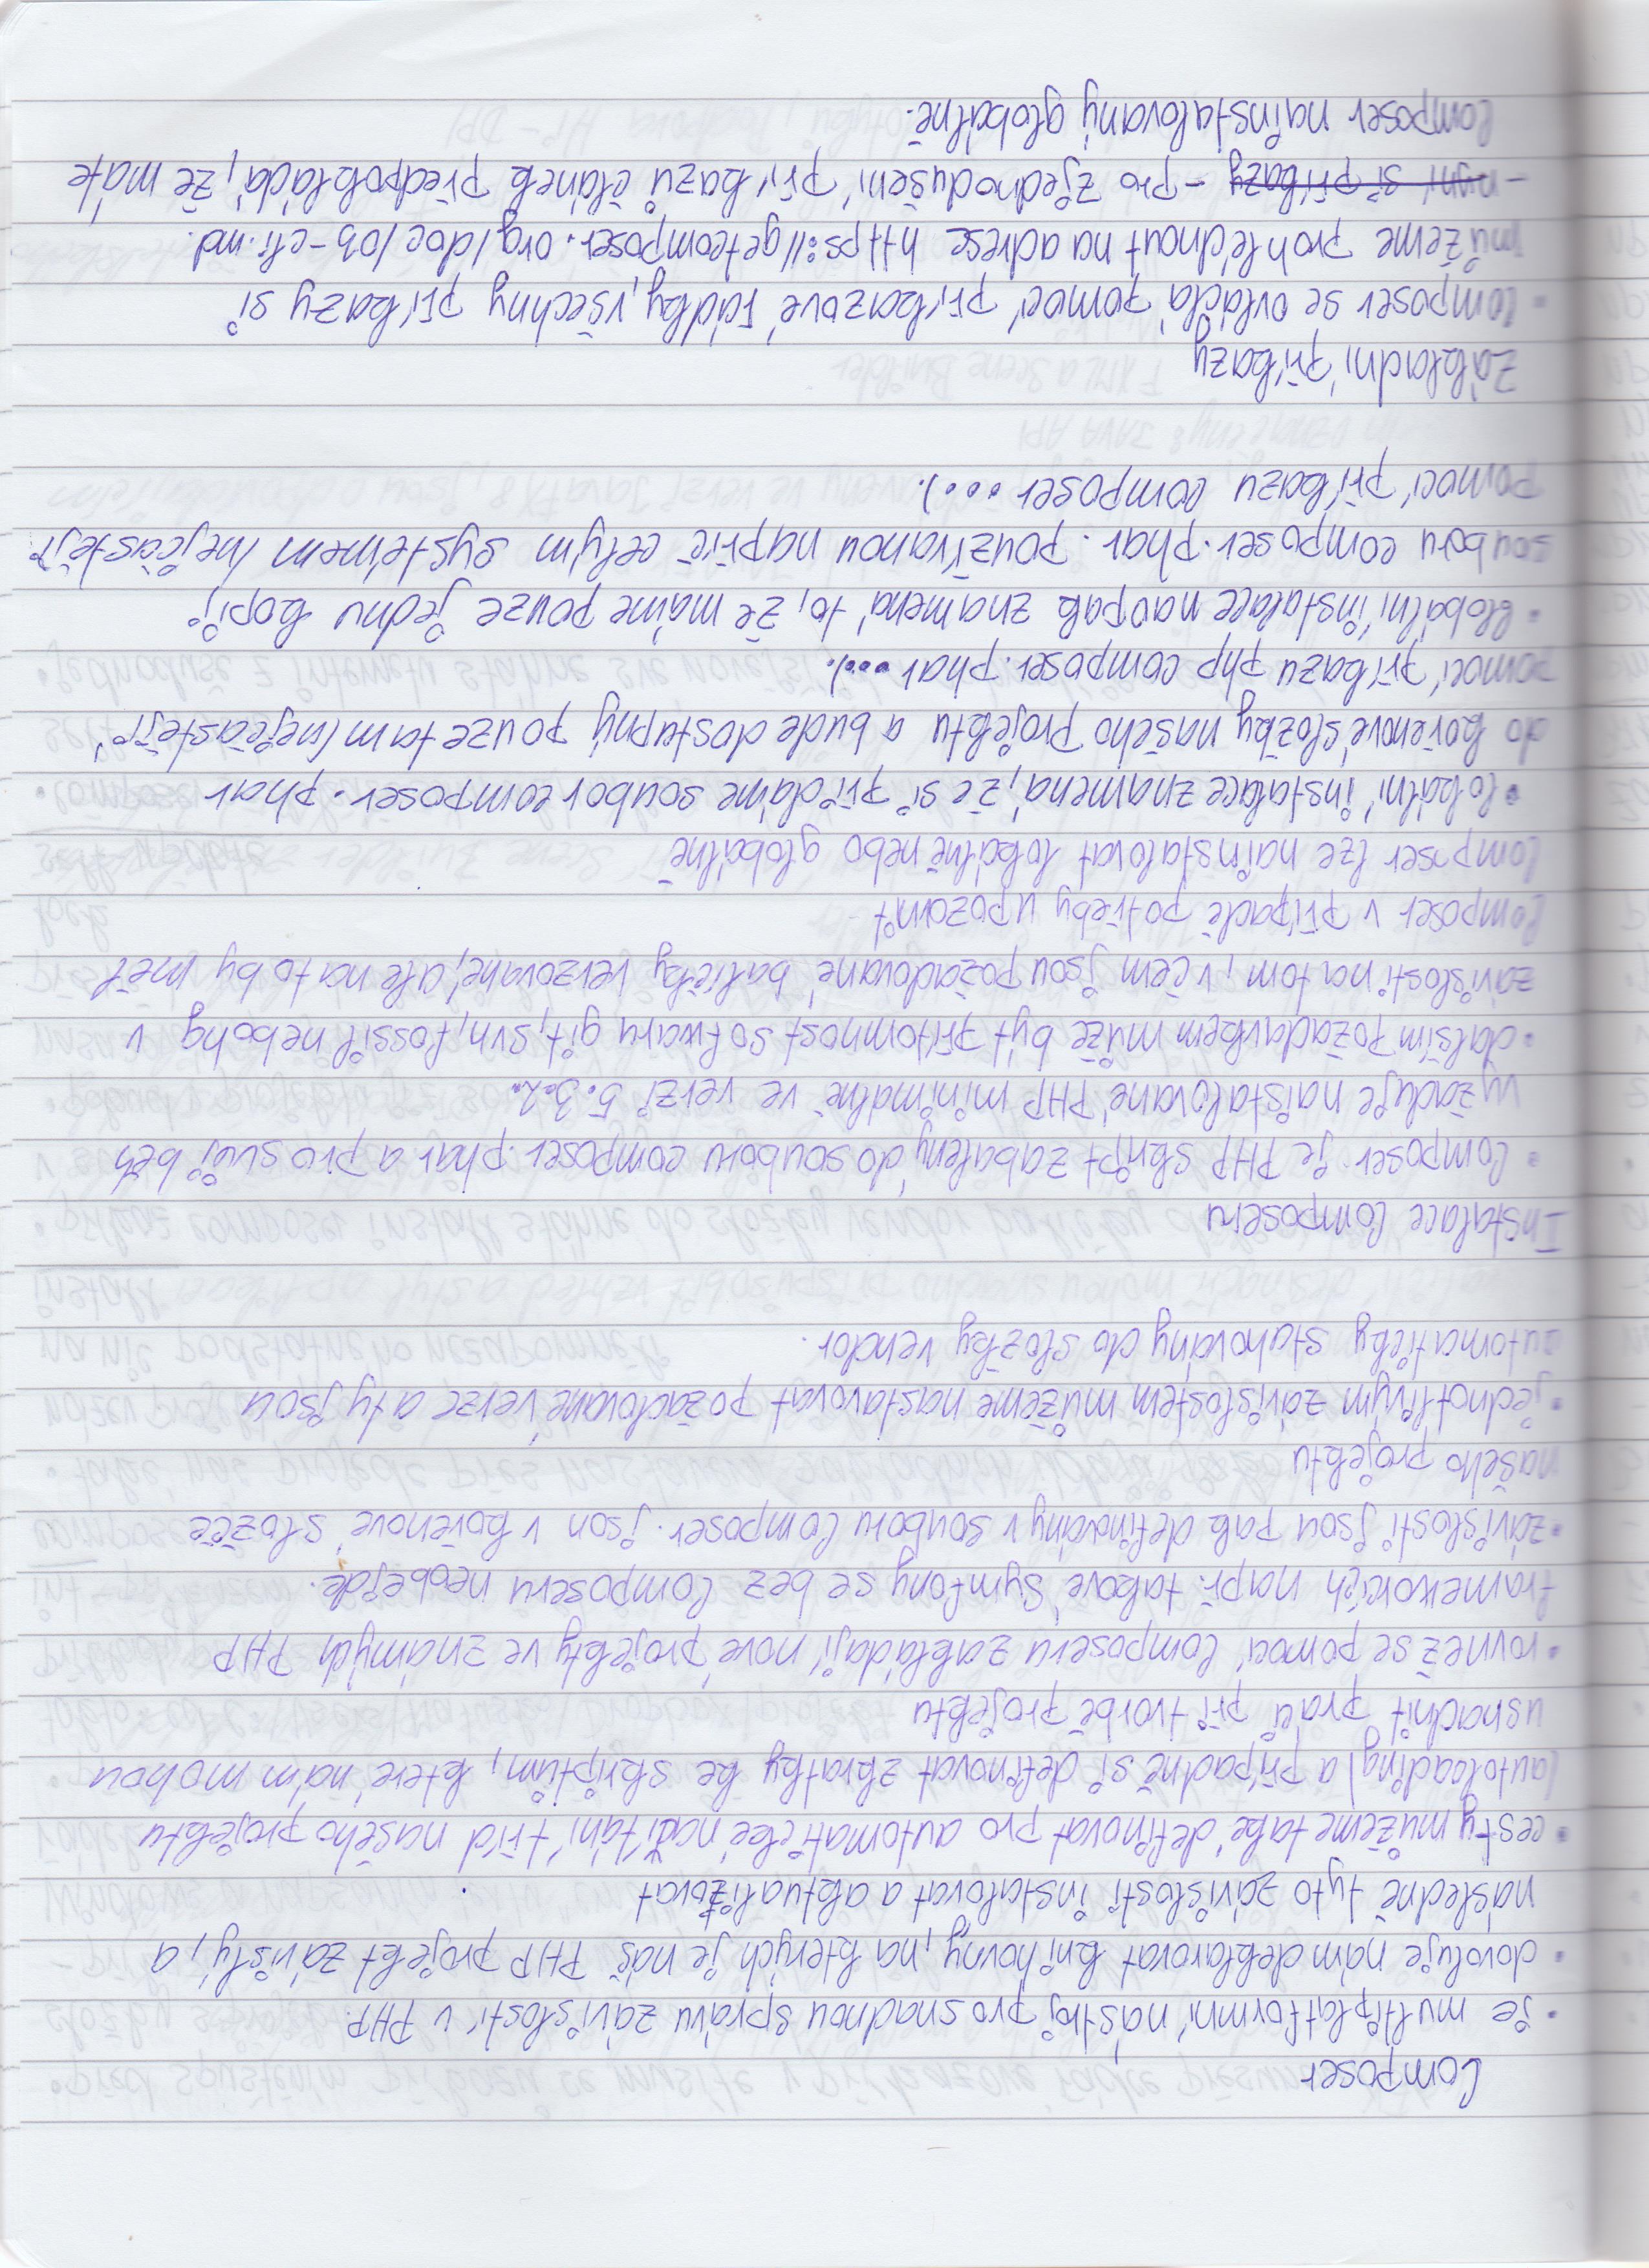 Composer
• je multiplatformní nástroj pro snadnou správu závislostí v PHP.
• dovoluje nám deklarovat knihovny, na kterých je náš PHP projekt závislý, a
následně tyto závislosti instalovat a aktualizovat
• cesty můžeme také definovat pro automatické načítání tříd našeho projektu
(autoloading) a případně si definovat zkratky ke skriptům, které nám mohou
usnadnit práci při tvorbě projektu
• rovněž se pomocí Composeru zakládají nové projekty ve známých PHP
frameworcích např. takové Symfony se bez Composeru neobejde.
• závislosti jsou pak definovány v souboru Composer.json v kořenové složče
našeho projektu
• jednotlivým závislostem můžeme nastavovat požadované verze a ty jsou
automaticky stahovány do složky vendor.
Instalace Composeru
• Composer je PHP skript zabalený do souboru composer.phar a pro svůj běh
vyžaduje naistalované PHP minimálně ve verzi 5.3.2.
• dalším požadavkem může být přítomnost sofwaru git, svn, fossil nebo hg v
závislosti na tom, v čem jsou požadované balíčky verzované, ale na to by měl
Composer v případě potřeby upozornit
Composer lze nainstalovat lokálně nebo globálně
• lokální instalace znamená, že si přidáme soubor composer.phar
do kořenové složky našeho projektu a bude dostupný pouze tam (nejčastěji
pomocí příkazu php composer.phar ...).
• Globální instalace naopak znamená to, že máme pouze jednu kopii
souboru composer.phar. používanou napříč celým systémem (nejčastěji
pomocí příkazu composer ...).
Základní příkazy
• Composer se ovládá pomocí příkazové řádky, všechny příkazy si
můžeme prohlédnout na adrese https://getcomposer.org/doc/03-cli.md.
- nyní si příkazy - pro zjednodušení příkazů článek předpokládá, že máte
Composer nainstalovaný globálně.